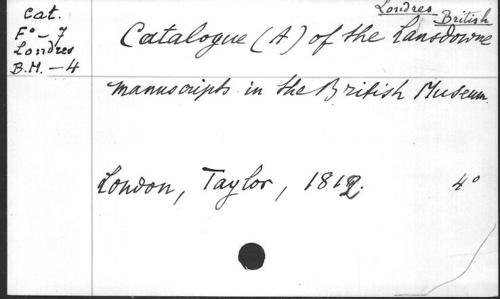 Cat.
F° - 7
Londres
B.M. - 4
Londres - British
Catalogue (A) of the Lansdowne
manuscripts in the British Museum
London, Taylor, 1812. 4°